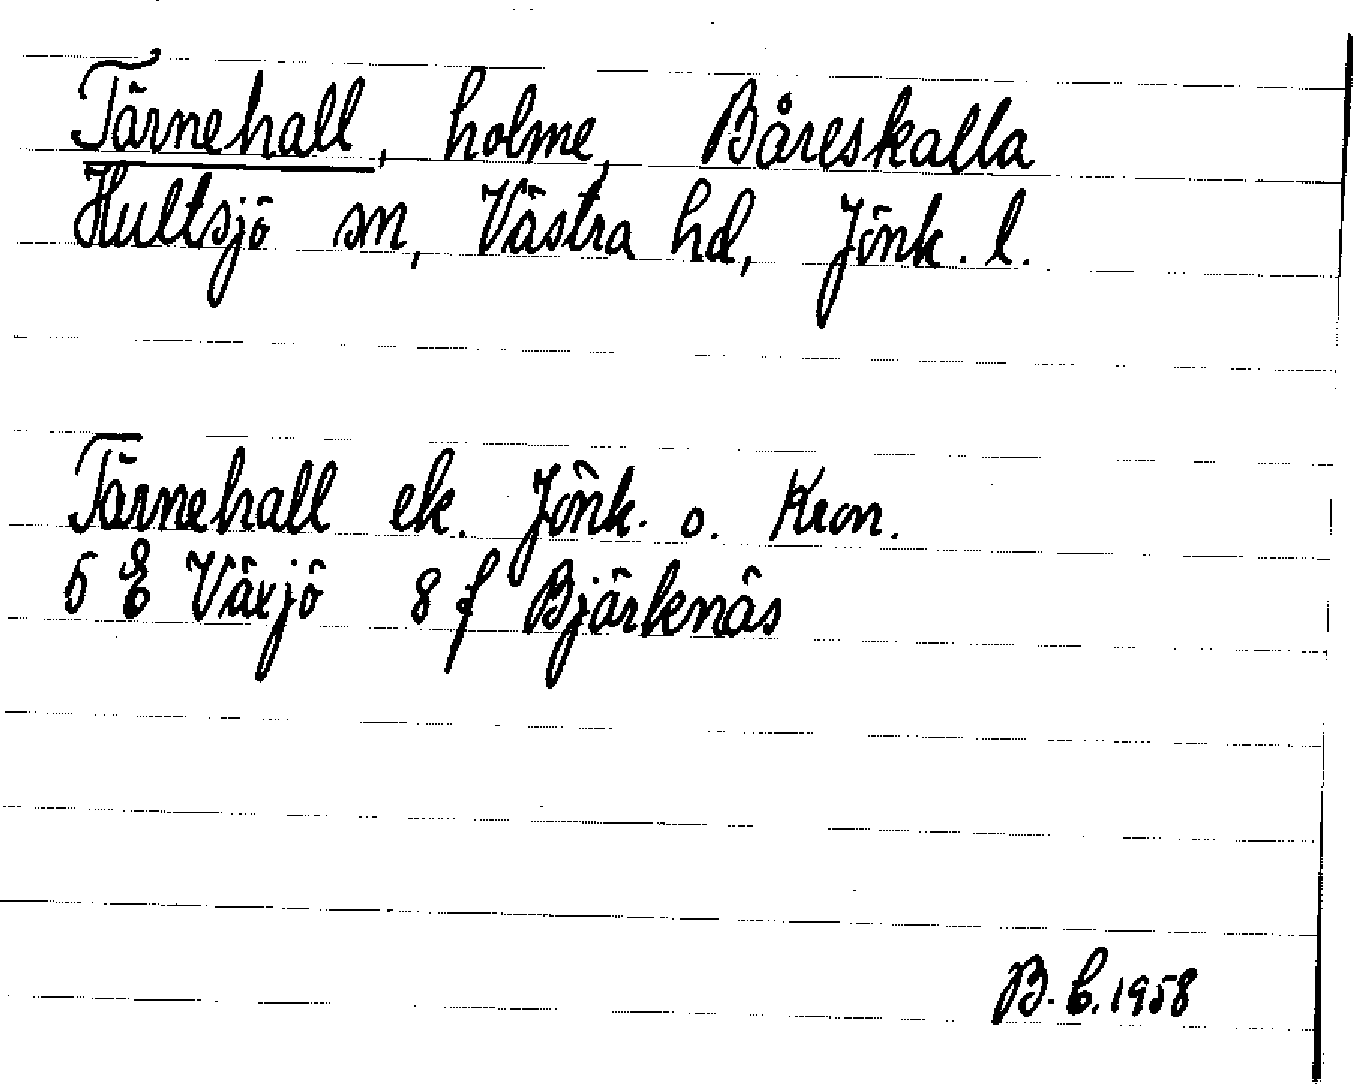 Tärnehall, holme, Båreskalla
Hultsjö sn, Västra hd, Jönk. l.
Tärnehall ek. Jönk. o. Kron.
5 E Växjö 8 f Bjärknäs
B. b. 1958